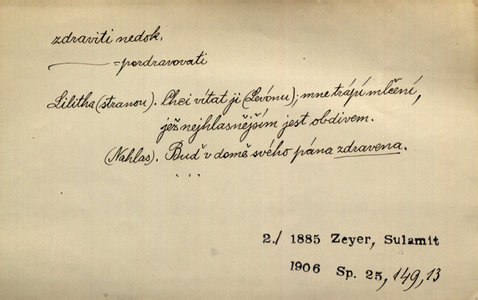 zdraviti nedok.
=pozdravovati
Lilitha (stranou). Chci vítat ji (Levónu); mne trápí mlčení,
jež nejhlasnějším jest obdivem.
(Nahlas). Buď v domě svého pána zdravena.
...
2./ 1885 Zeyer, Sulamit
1906 Sp. 25, 149, 13